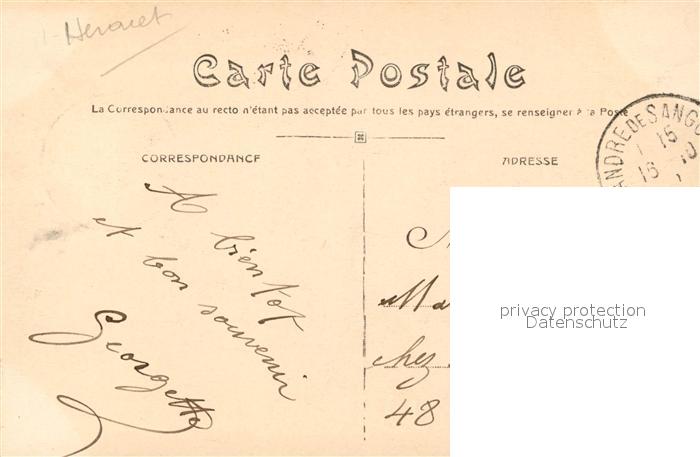 Herouet
Carte Postale
La Correspondance au recto n'étant pas acceptée par tous les pays étrangers, se renseigner à la Poste
CORRESPONDANCE
ADRESSE
ANDRE DE SANG
15
16 10
A bientot
et bon souvenir
Georgette
Ma
chez
48
privacy protection
Datenschutz